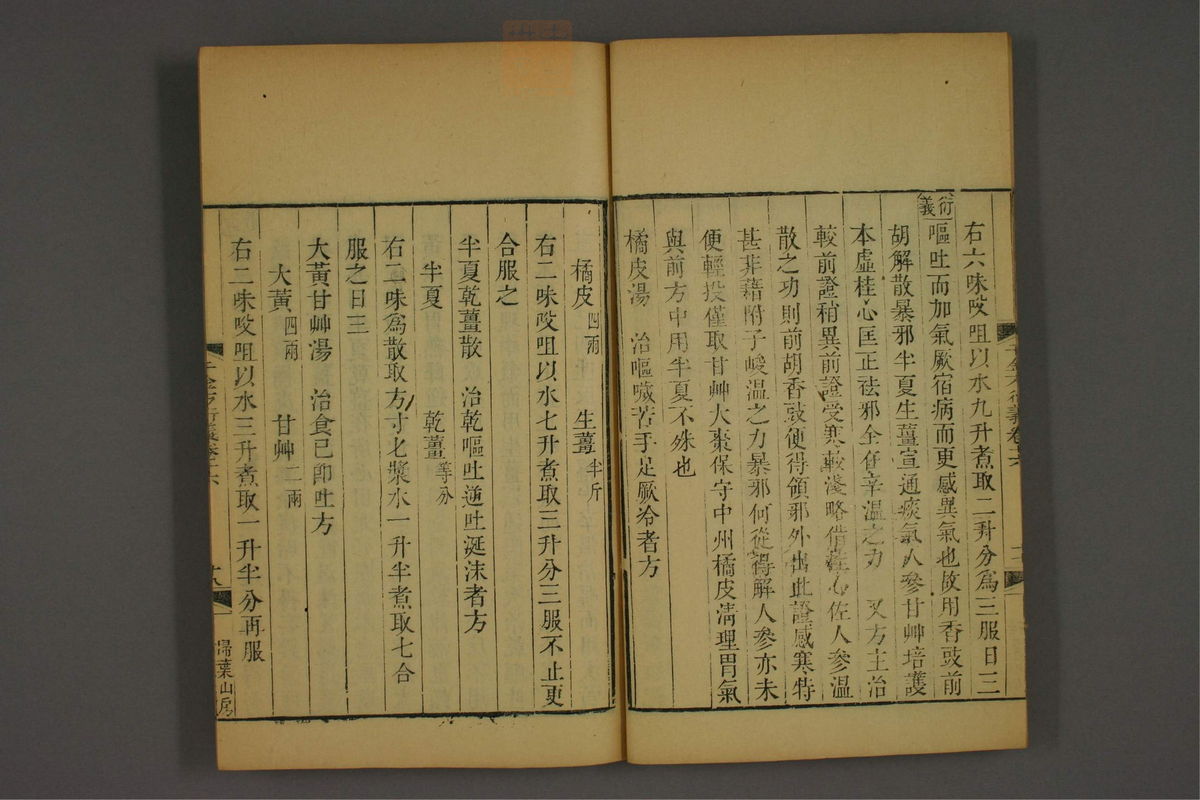 右六味㕮咀以水九升煮取二升分爲三服日三
衍義
嘔吐而加氣厥宿病而更感異氣也故用香豉前
胡解散暴邪半夏生薑宣通痰氣人參甘艸培護
本虛桂心匡正祛邪全在辛溫之力 又方主治
較前證稍異前證受寒較淺略借桂心佐人參溫
散之功則前胡香豉便得領邪外出此證感寒特
甚非藉附子峻溫之力暴邪何從得解人參亦未
便輕投僅取甘艸大棗保守中州橘皮清理胃氣
與前方中用半夏不殊也
橘皮湯 治嘔噦苦手足厥冷者方
橘皮四兩 生薑半斤
右二味㕮咀以水七升煮取三升分三服不止更
合服之
半夏乾薑散 治乾嘔吐逆吐涎沫者方
半夏 乾薑等分
右二味爲散取方寸匕漿水一升半煮取七合
服之日三
大黃甘艸湯 治食已卽吐方
大黃四兩 甘艸二兩
右二味㕮咀以水三升煮取一升半分再服
千金方衍義卷十六
十八
掃葉山房